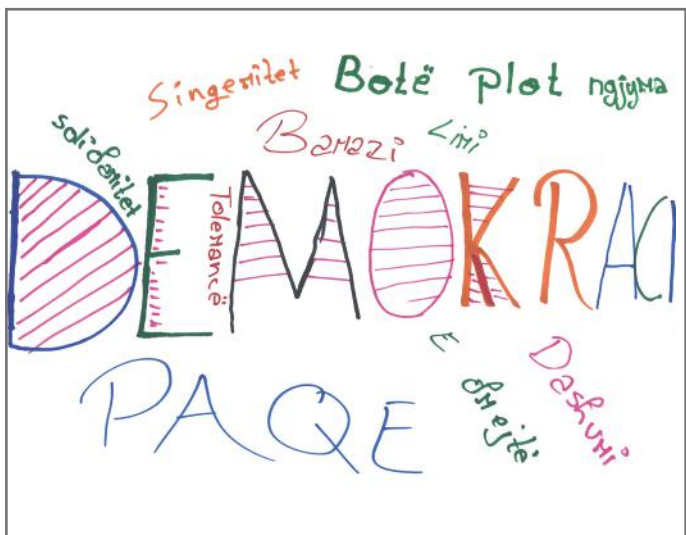 Singeritet
Botë plot ngjyra
solidaritet
Barazi
Liri
DEMOKRACI
Tolerancë
E drejtë
Dashuri
PAQE